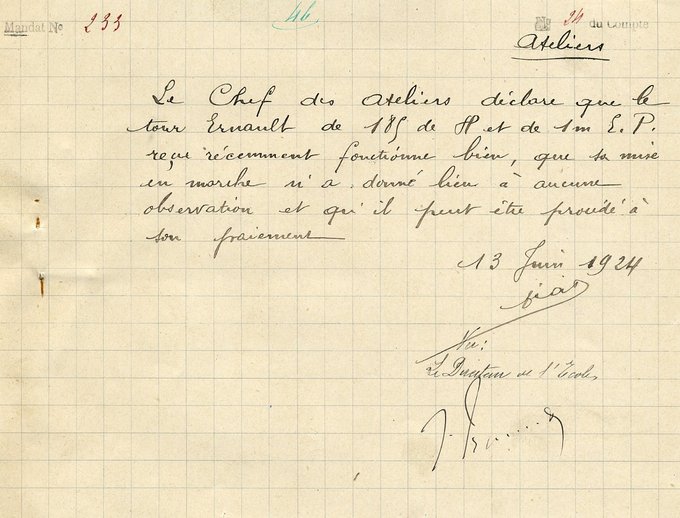 Mandat No 233
46.
No 24 du Compte
Ateliers
Le Chef des ateliers déclare que le
tour Ernault de 185 de H et de 1m E.P.
reçu récemment fonctionne bien, que sa mise
en marche n'a donné lieu à aucune
observation et qu'il peut être procédé à
son paiement
13 Juin 1924
Vu:
Le Directeur de l'Ecole,